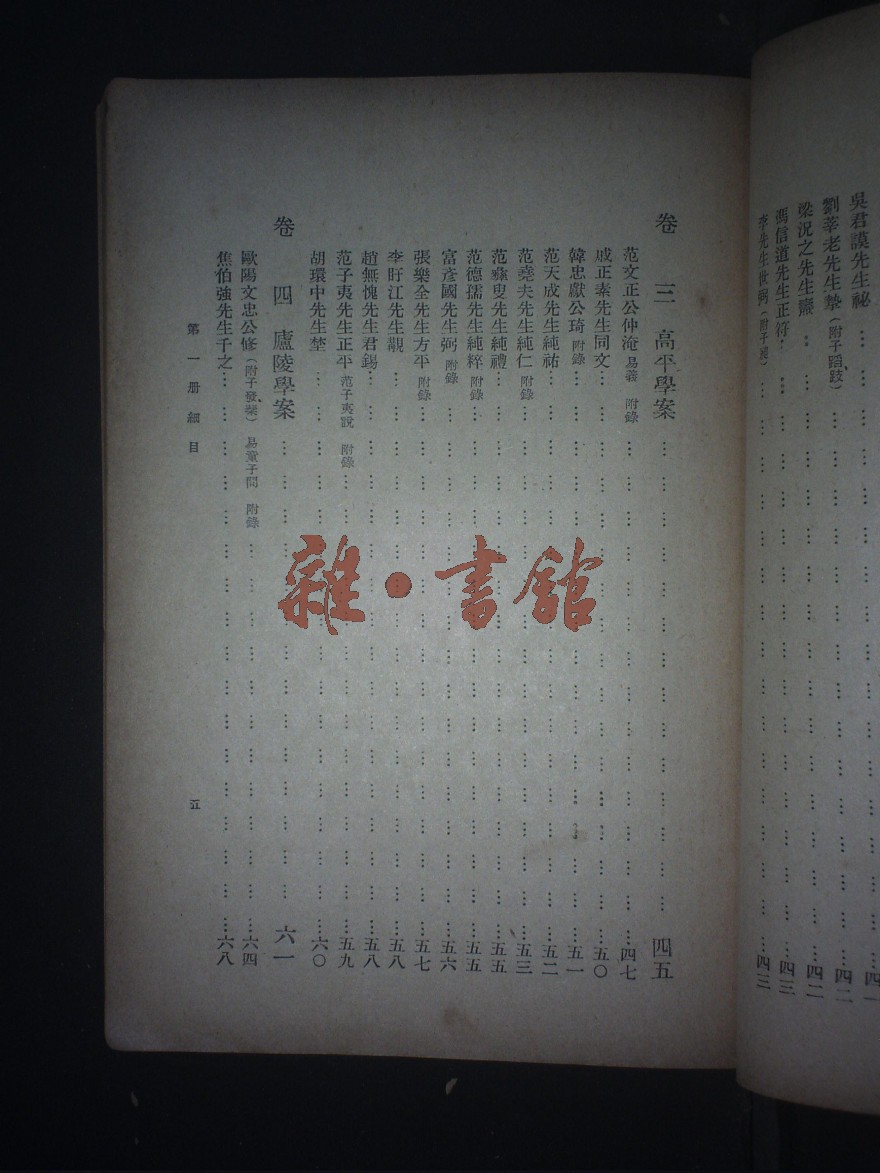 吳君謨先生祕……四一
劉莘老先生摯(附子蹈、跂)……四二
梁況之先生燾……四二
馮信道先生正符……四三
李先生世弼(附子昶)……四三
卷三 高平學案……四五
范文正公仲淹 易義 附錄……四七
戚正素先生同文……五〇
韓忠獻公琦 附錄……五一
范天成先生純祐……五二
范堯夫先生純仁 附錄……五三
范彝叟先生純禮……五五
范德孺先生純粹 附錄……五五
富彥國先生弼 附錄……五六
張樂全先生方平 附錄……五七
李盱江先生覯……五八
趙無愧先生君錫……五八
范子夷先生正平 范子夷說 附錄……五九
胡環中先生埜……六〇
卷四 廬陵學案……六一
歐陽文忠公修(附子發、棐) 易童子問 附錄……六四
焦伯強先生千之……六八
第一册細目
五
雜·書館